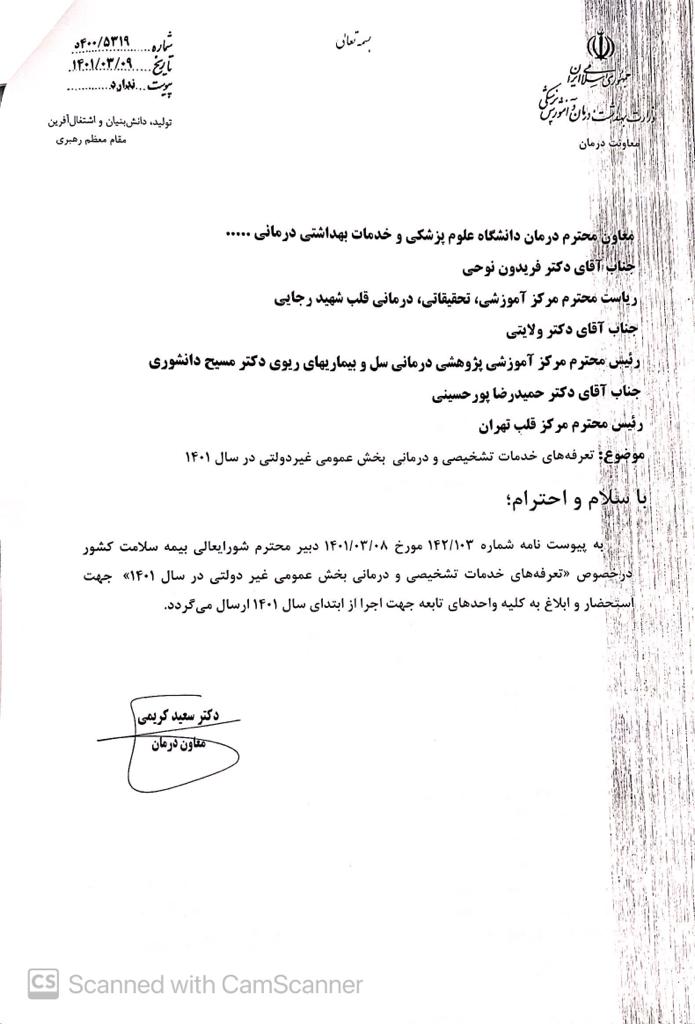 بسمه تعالی
جمهوری اسلامی ایران
وزارت بهداشت، درمان و آموزش پزشکی
معاونت درمان
شماره ۴۰۰/۵۳۱۹د
تاریخ ۱۴۰۱/۰۳/۰۹
پیوست ندارد
تولید، دانش‌بنیان و اشتغال‌آفرین
مقام معظم رهبری
معاون محترم درمان دانشگاه علوم پزشکی و خدمات بهداشتی درمانی .....
جناب آقای دکتر فریدون نوحی
ریاست محترم مرکز آموزشی، تحقیقاتی، درمانی قلب شهید رجایی
جناب آقای دکتر ولایتی
رئیس محترم مرکز آموزشی پژوهشی درمانی سل و بیماریهای ریوی دکتر مسیح دانشوری
جناب آقای دکتر حمیدرضا پورحسینی
رئیس محترم مرکز قلب تهران
موضوع: تعرفه‌های خدمات تشخیصی و درمانی بخش عمومی غیردولتی در سال ۱۴۰۱
با سلام و احترام؛
به پیوست نامه شماره ۱۴۲/۱۰۳ مورخ ۱۴۰۱/۰۳/۰۸ دبیر محترم شورایعالی بیمه سلامت کشور
درخصوص «تعرفه‌های خدمات تشخیصی و درمانی بخش عمومی غیر دولتی در سال ۱۴۰۱» جهت
استحضار و ابلاغ به کلیه واحدهای تابعه جهت اجرا از ابتدای سال ۱۴۰۱ ارسال می‌گردد.
دکتر سعید کریمی
معاون درمان
CS Scanned with CamScanner